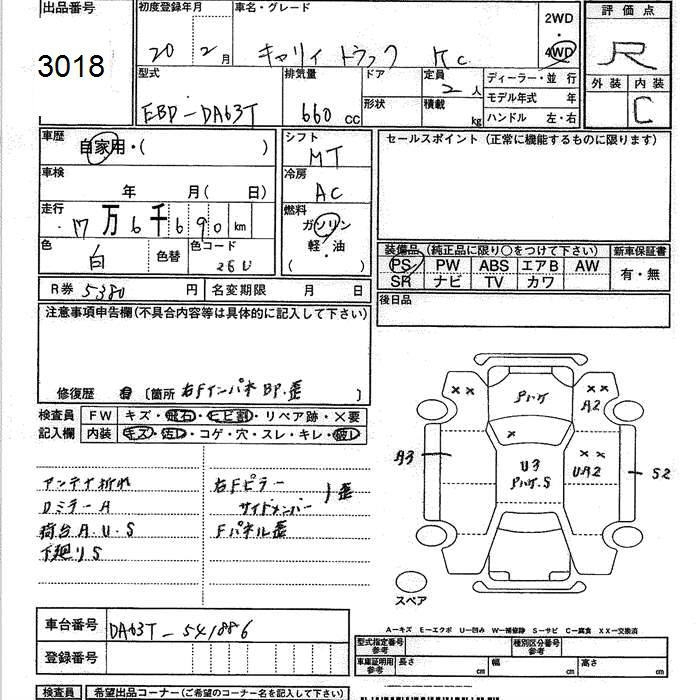 出品番号
3018
初度登録年月
20年2月
車名・グレード
キャリィ トラック KC
2WD
4WD
評価点
R
外装 内装
C
型式
EBD-DA63T
排気量
660 cc
ドア
形状
定員
2人
積載
kg
ディーラー・並行
モデル年式 年
ハンドル 左・右
車歴
自家用・( )
シフト
MT
セールスポイント (正常に機能するものに限ります)
車検
年 月( 日)
冷房
AC
走行
17万6千690km
燃料
ガソリン
軽・油
( )
色
白
色替
色コード
26U
装備品 (純正品に限り○をつけて下さい)
新車保証書
PS PW ABS エアB AW
SR ナビ TV カワ
有・無
R券 5380円
名変期限 月 日
後日品
注意事項申告欄(不具合内容等は具体的に記入して下さい)
修復歴 有 〔箇所 右Fインパネ BP.歪 〕
検査員
記入欄
FW キズ・飛石・ヒビ割・リペア跡・×要
内装 キズ・汚レ・コゲ・穴・スレ・キレ・破レ
アンテナ折れ
DミラーA
荷台A.U.S
下廻りS
右Fピラー
サイドメンバー
歪
Fパネル歪
A2
A3
U3
UA2
S2
スペア
A─キズ E─エクボ U─凹み W─補修跡 S─サビ C─腐食 XX─交換済
車台番号 DA63T-541886
登録番号
型式指定番号
参考
種別区分番号
参考
車庫証明用
参考
長さ cm
幅 cm
高さ cm
検査員
希望出品コーナー(ご希望のコーナー名を記入下さい)